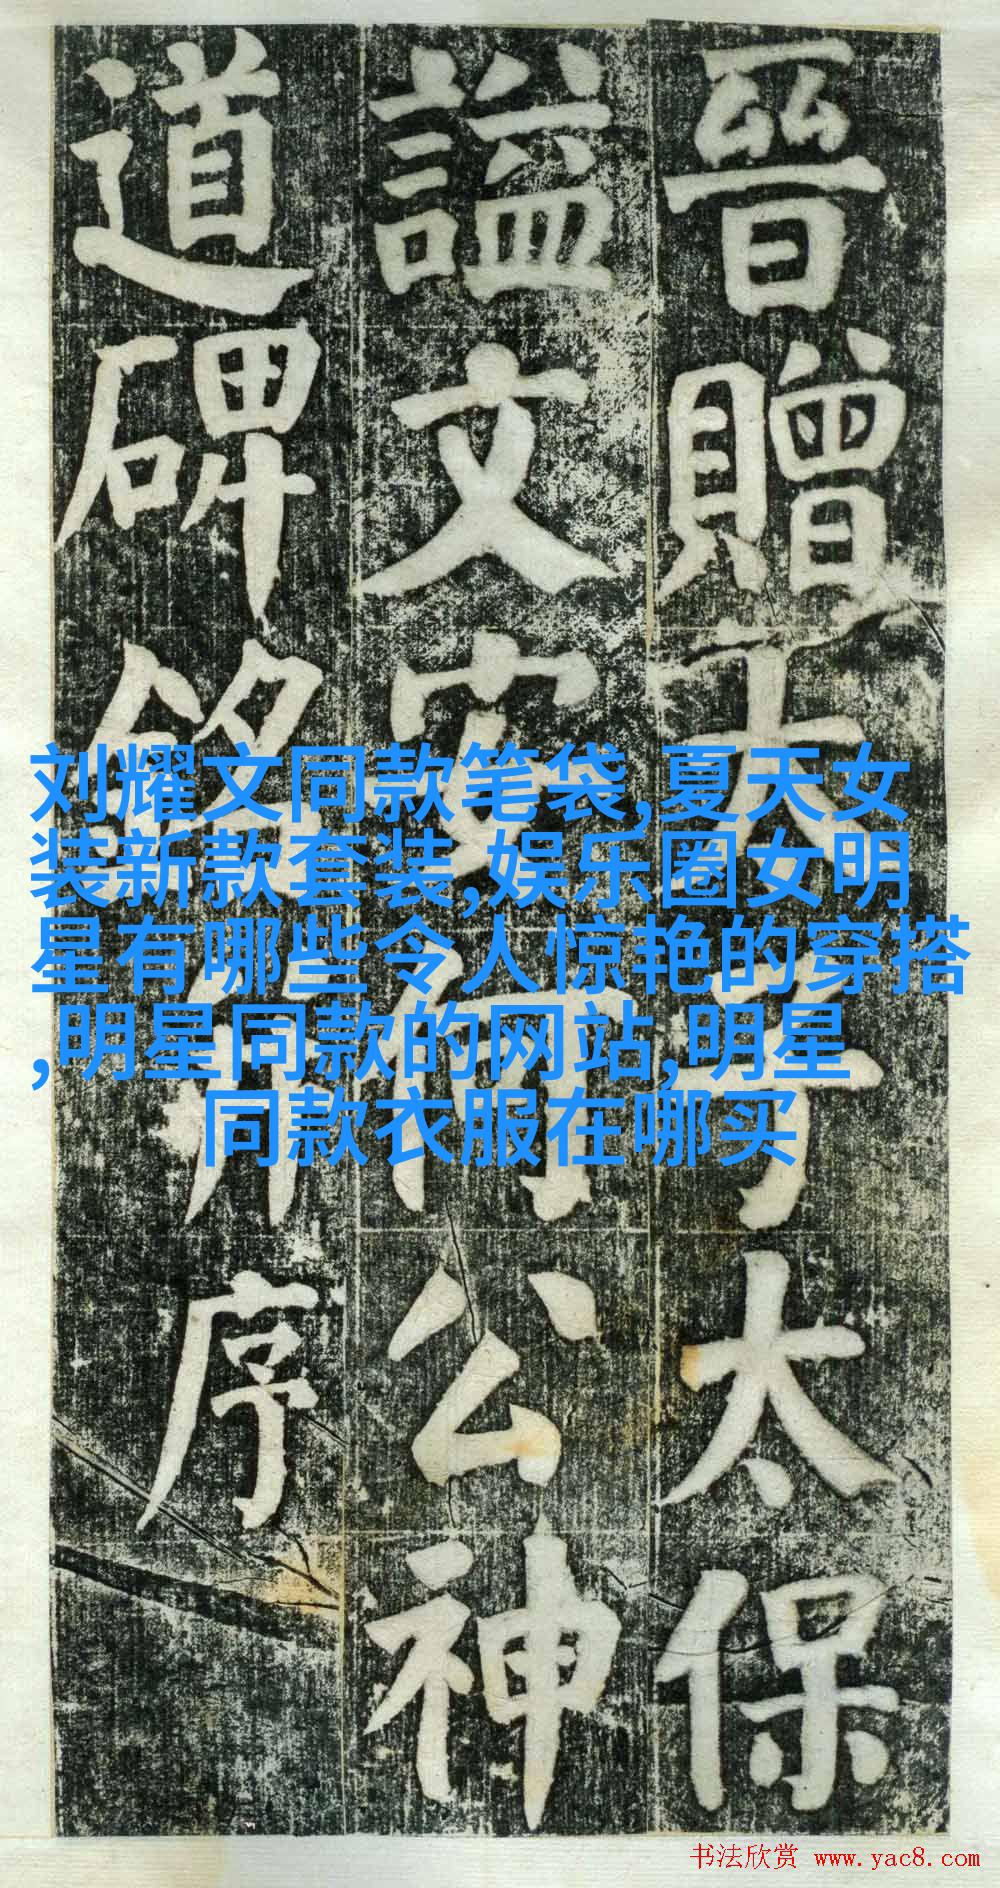 晉贈太子太保
謚文安何公神
道碑銘并序
刘耀文同款笔袋,夏天女
装新款套装,娱乐圈女明
星有哪些令人惊艳的穿搭
,明星同款的网站,明星
同款衣服在哪买
书法欣赏 www.yac8.com